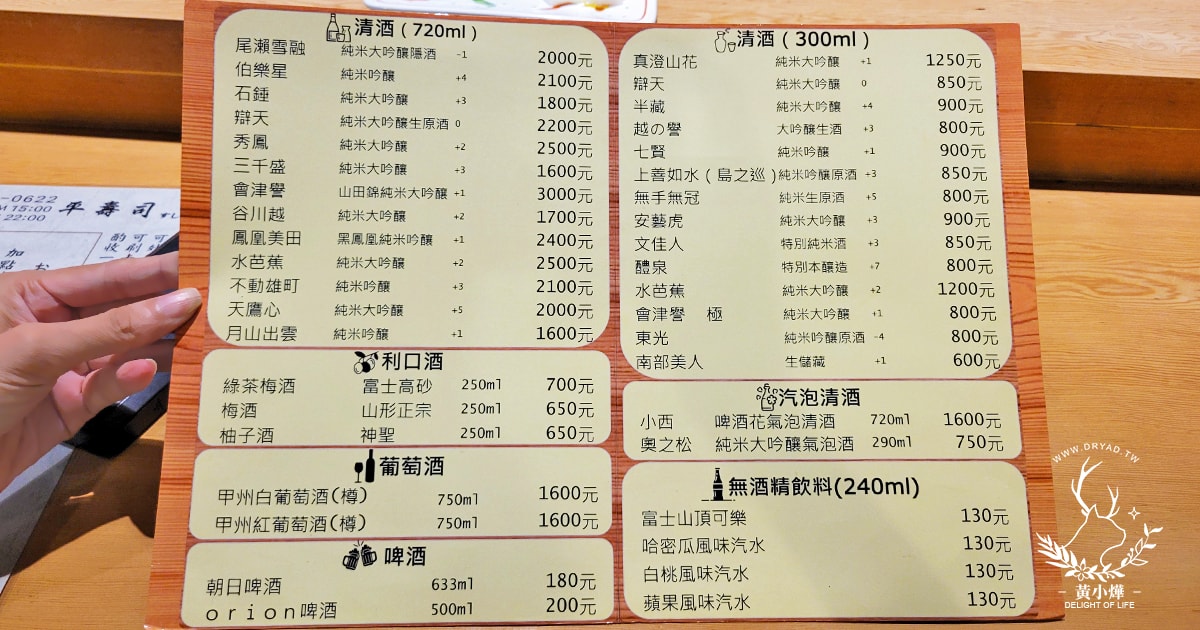 清酒（720ml）
尾瀨雪融 純米大吟釀隱酒 -1 2000元
伯樂星 純米吟釀 +4 2100元
石鎚 純米大吟釀 +3 1800元
辯天 純米大吟釀生原酒 0 2200元
秀鳳 純米大吟釀 +2 2500元
三千盛 純米大吟釀 +3 1600元
會津譽 山田錦純米大吟釀 +1 3000元
谷川越 純米大吟釀 +2 1700元
鳳凰美田 黑鳳凰純米吟釀 +1 2400元
水芭蕉 純米大吟釀 +2 2500元
不動雄町 純米吟釀 +3 2100元
天鷹心 純米大吟釀 +5 2000元
月山出雲 純米吟釀 +1 1600元
利口酒
綠茶梅酒 富士高砂 250ml 700元
梅酒 山形正宗 250ml 650元
柚子酒 神聖 250ml 650元
葡萄酒
甲州白葡萄酒(樽) 750ml 1600元
甲州紅葡萄酒(樽) 750ml 1600元
啤酒
朝日啤酒 633ml 180元
orion啤酒 500ml 200元
清酒（300ml）
真澄山花 純米大吟釀 +1 1250元
辯天 純米大吟釀 0 850元
半藏 純米大吟釀 +4 900元
越の譽 大吟釀生酒 +3 800元
七賢 純米吟釀 +1 900元
上善如水（島之巡）純米吟釀原酒 +3 850元
無手無冠 純米生原酒 +5 800元
安藝虎 純米大吟釀 +3 900元
文佳人 特別純米酒 +3 850元
醴泉 特別本釀造 +7 800元
水芭蕉 純米大吟釀 +2 1200元
會津譽 極 純米大吟釀 +1 800元
東光 純米吟釀原酒 -4 800元
南部美人 生儲藏 +1 600元
汽泡清酒
小西 啤酒花氣泡清酒 720ml 1600元
奧之松 純米大吟釀氣泡酒 290ml 750元
無酒精飲料(240ml)
富士山頂可樂 130元
哈密瓜風味汽水 130元
白桃風味汽水 130元
蘋果風味汽水 130元
-0622
15:00
22:00
平壽司
加
點
WWW.DRYAD.TW
- 黃小燁 -
DELIGHT OF LIFE